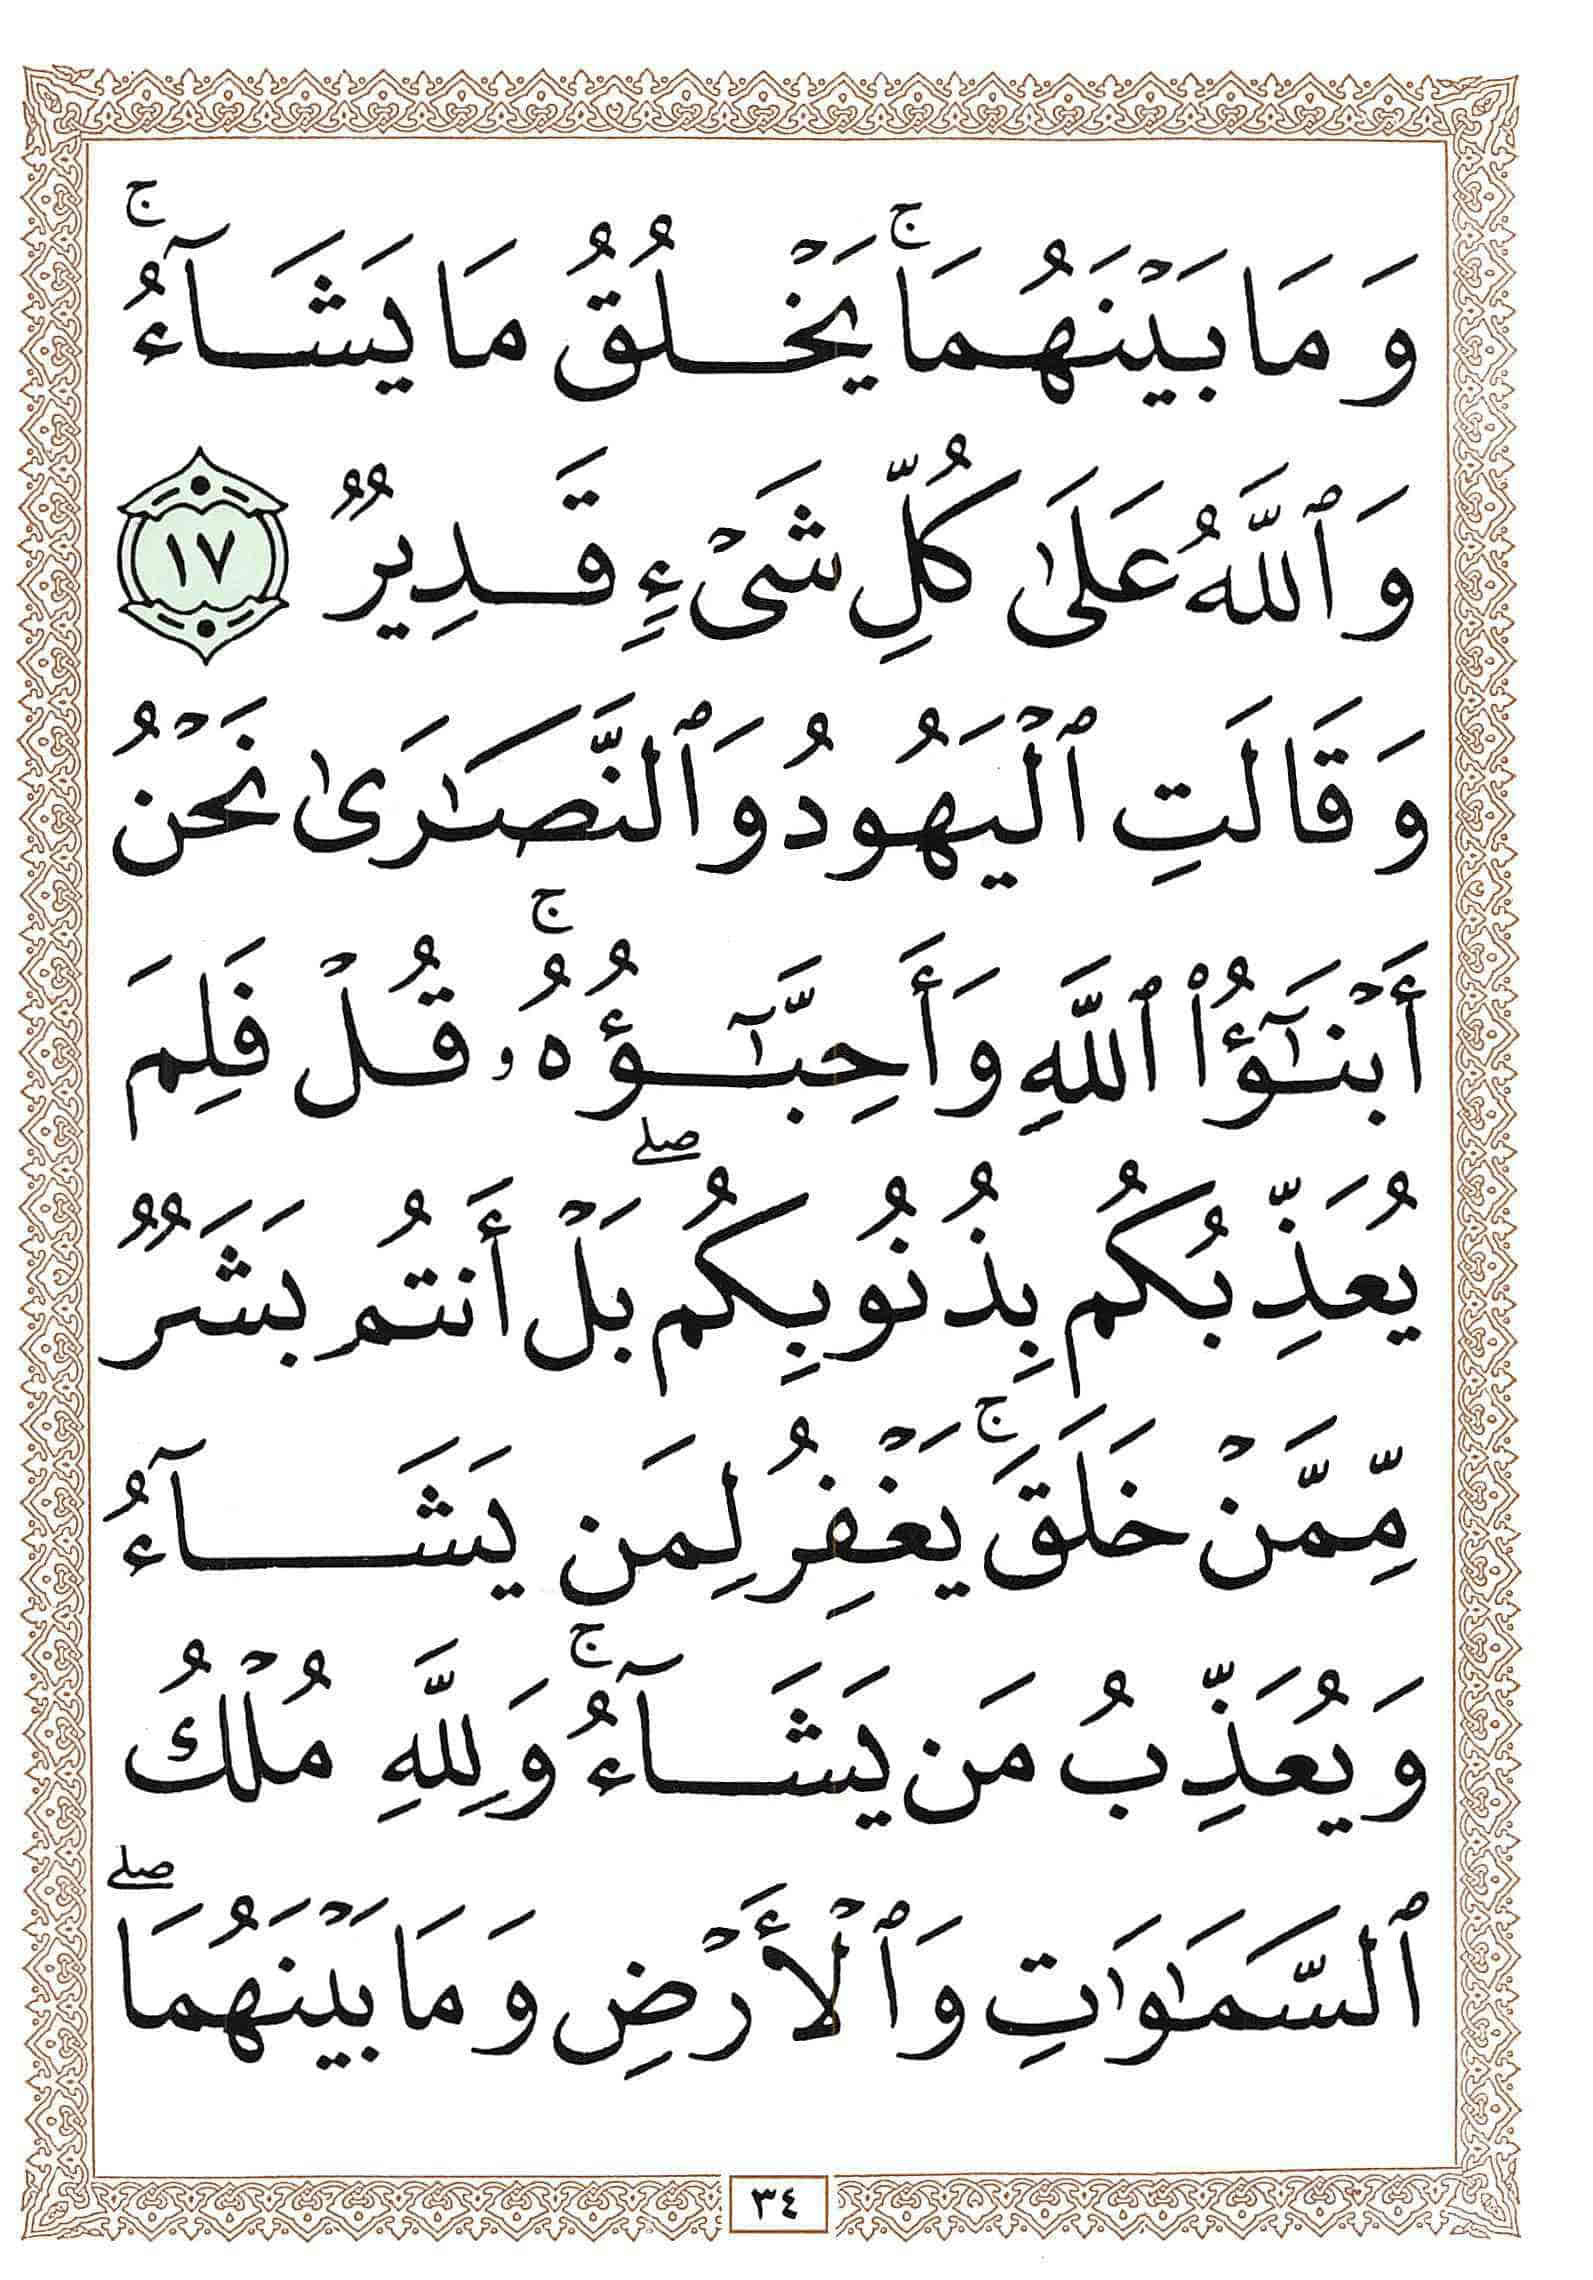 وَمَا بَيْنَهُمَاۚ يَخْلُقُ مَا يَشَآءُۚ
وَٱللَّهُ عَلَىٰ كُلِّ شَىْءٍ قَدِيرٌ ١٧
وَقَالَتِ ٱلْيَهُودُ وَٱلنَّصَـٰرَىٰ نَحْنُ
أَبْنَـٰٓؤُا۟ ٱللَّهِ وَأَحِبَّـٰٓؤُهُۥۚ قُلْ فَلِمَ
يُعَذِّبُكُم بِذُنُوبِكُمۖ بَلْ أَنتُم بَشَرٌ
مِّمَّنْ خَلَقَۚ يَغْفِرُ لِمَن يَشَآءُ
وَيُعَذِّبُ مَن يَشَآءُۚ وَلِلَّهِ مُلْكُ
ٱلسَّمَـٰوَٰتِ وَٱلْأَرْضِ وَمَا بَيْنَهُمَاۖ
٣٤